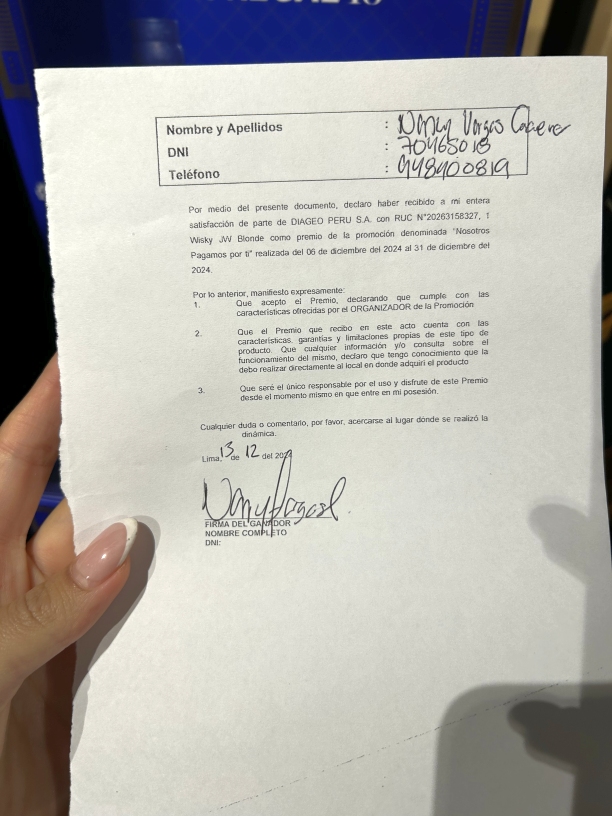 Nombre y Apellidos : Nancy Vargas
DNI : 70465018
Teléfono : 948400819
Por medio del presente documento, declaro haber recibido a mi entera
satisfacción de parte de DIAGEO PERU S.A. con RUC N°20263158327, 1
Wisky JW Blonde como premio de la promoción denominada "Nosotros
Pagamos por ti" realizada del 06 de diciembre del 2024 al 31 de diciembre del
2024.
Por lo anterior, manifiesto expresamente:
1. Que acepto el Premio, declarando que cumple con las
características ofrecidas por el ORGANIZADOR de la Promoción
2. Que el Premio que recibo en este acto cuenta con las
características, garantías y limitaciones propias de este tipo de
producto. Que cualquier información y/o consulta sobre el
funcionamiento del mismo, declaro que tengo conocimiento que la
debo realizar directamente al local en donde adquirí el producto
3. Que seré el único responsable por el uso y disfrute de este Premio
desde el momento mismo en que entre en mi posesión.
Cualquier duda o comentario, por favor, acercarse al lugar donde se realizó la
dinámica.
Lima, 13 de 12 del 2024
FIRMA DEL GANADOR
NOMBRE COMPLETO
DNI: